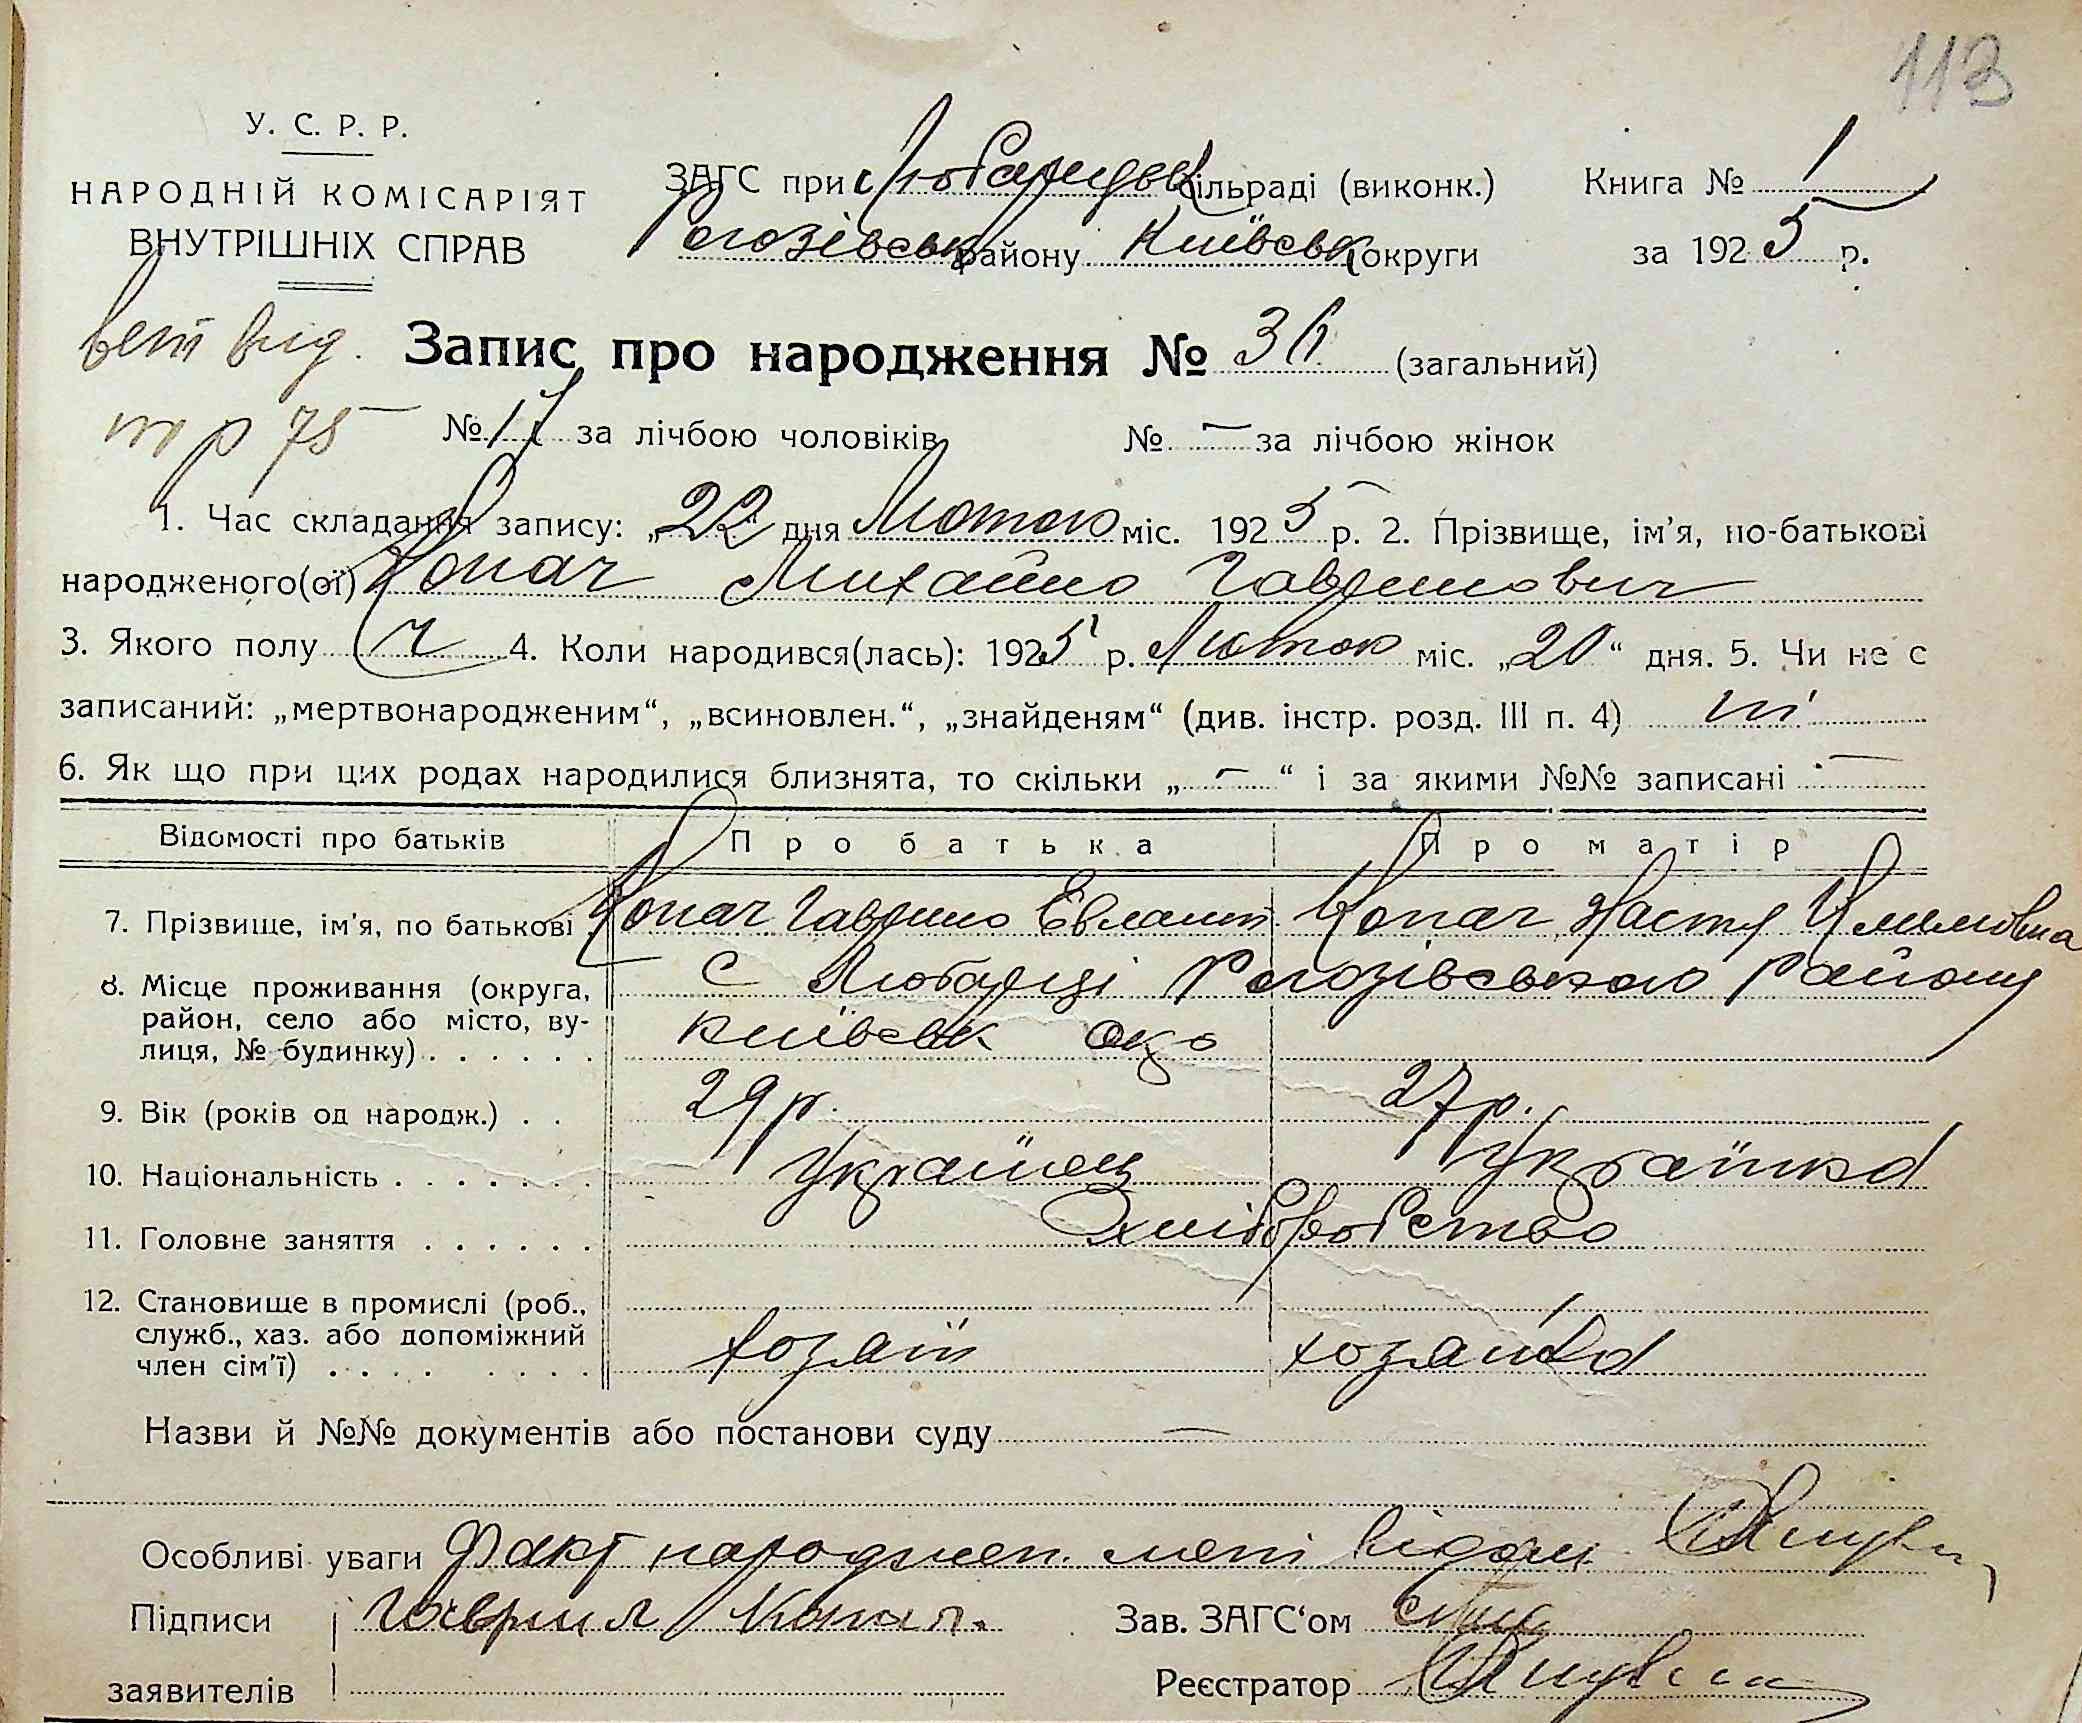 113
У. С. Р. Р.
НАРОДНІЙ КОМІСАРІЯТ
ВНУТРІШНІХ СПРАВ
ЗАГС при Любарецьк сільраді (виконк.) Книга № 1
Рогозівськ району Київськ округи за 1925 р.
Запис про народження № 36 (загальний)
стр 75 № 17 за лічбою чоловіків № — за лічбою жінок
1. Час складання запису: „22" дня Лютого міс. 1925 р. 2. Прізвище, ім'я, по-батькові
народженого(ої) Копач Михайло Гаврилович
3. Якого полу ч 4. Коли народився(лась): 1925 р. Лютого міс. „20" дня. 5. Чи не є
записаний: „мертвонародженим", „всиновлен.", „знайденям" (див. інстр. розд. III п. 4) ні
6. Як що при цих родах народилися близнята, то скільки „—" і за якими №№ записані —
Відомості про батьків Про батька Про матір
7. Прізвище, ім'я, по батькові Копач Гаврило Евламп. Копач Настя Климовна
8. Місце проживання (округа, с Любарці Рогозівського Району
район, село або місто, ву- Київськ окр
лиця, № будинку)
9. Вік (років од народж.) 29 р. 27 р.
10. Національність Українець Українка
11. Головне заняття Хліборобство
12. Становище в промислі (роб.,
служб., хаз. або допоміжний хозяїн хозяйка
член сім'ї)
Назви й №№ документів або постанови суду —
Особливі уваги Факт народжен. мені відом
Підписи Гаврил Копач. Зав. ЗАГС'ом
заявителів Реєстратор